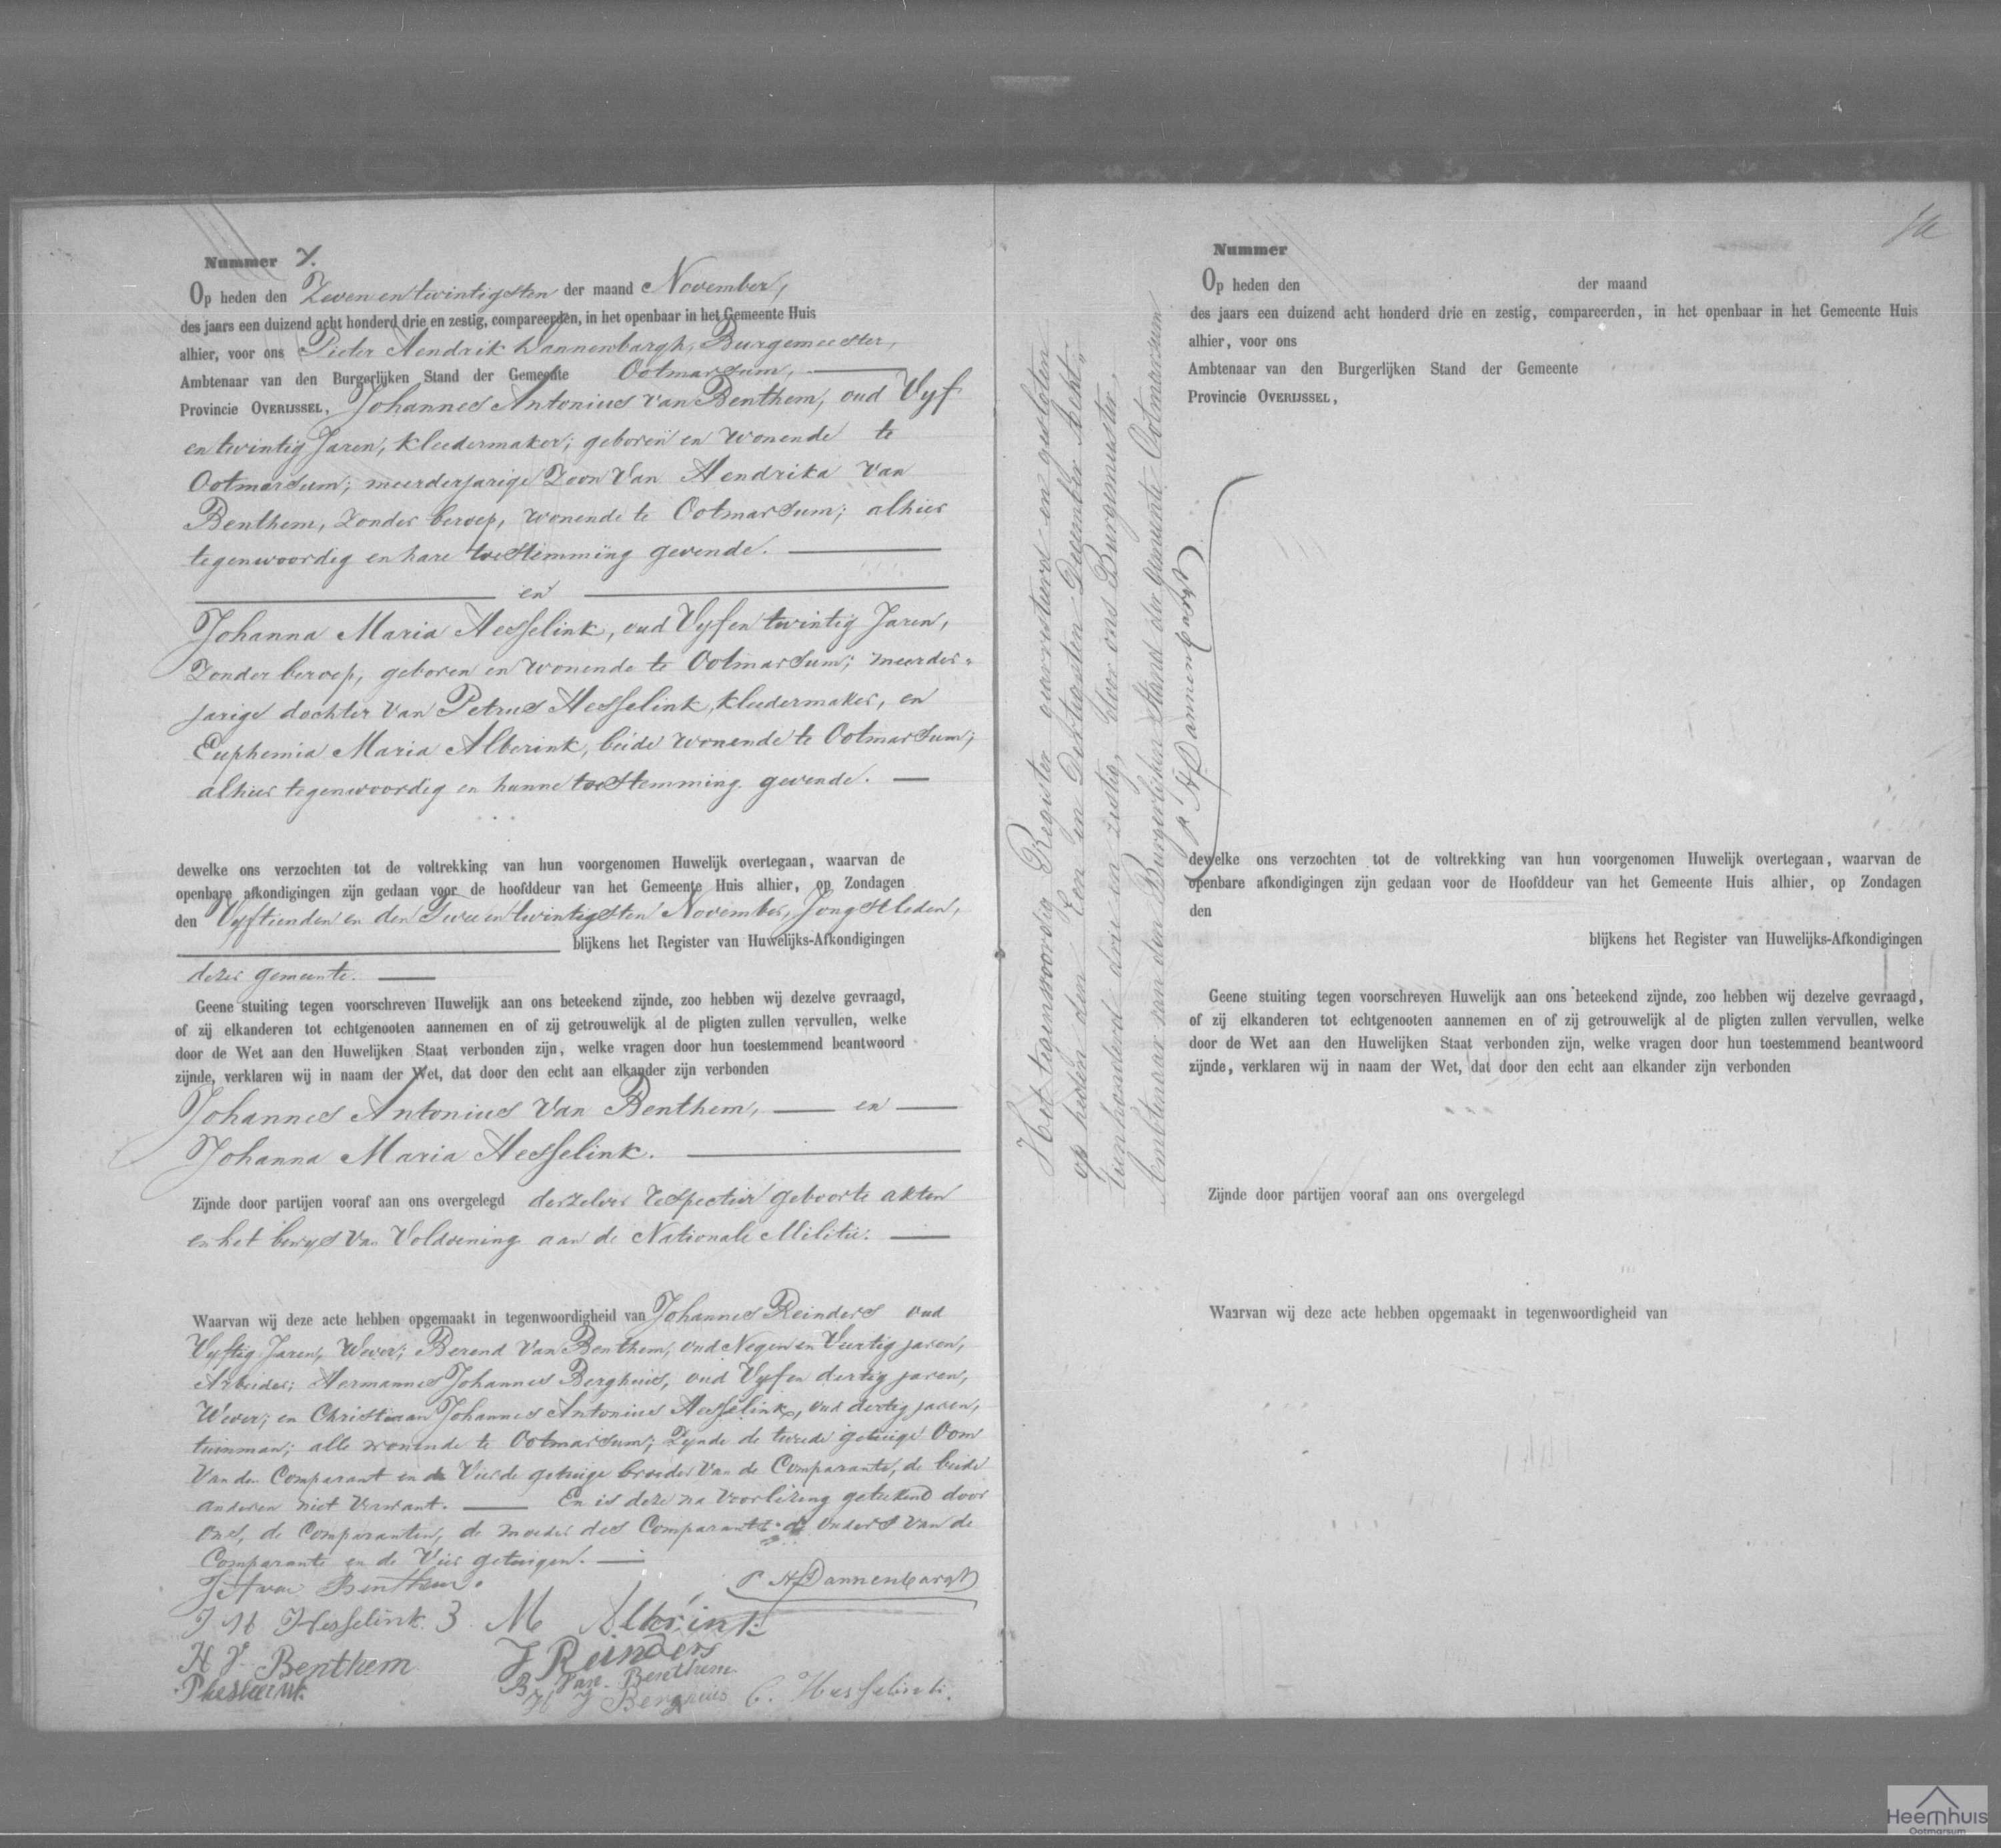 Nummer 7.
Op heden den Zeven en twintigsten der maand November,
des jaars een duizend acht honderd drie en zestig, compareerden, in het openbaar in het Gemeente Huis
alhier, voor ons Pieter Hendrik Dannenbargh, Burgemeester,
Ambtenaar van den Burgerlijken Stand der Gemeente Ootmarsum,
Provincie OVERIJSSEL, Johannes Antonius van Benthem, oud Vyf
en twintig Jaren, kleedermaker; geboren en wonende te
Ootmarsum; meerderjarige Zoon van Hendrika van
Benthem, zonder beroep, wonende te Ootmarsum; alhier
tegenwoordig en hare toestemming gevende.
en
Johanna Maria Hesselink, oud Vyf en twintig Jaren,
Zonder beroep, geboren en wonende te Ootmarsum; meerder-
jarige dochter van Petrus Hesselink, kleedermaker, en
Euphemia Maria Alberink, beide wonende te Ootmarsum;
alhier tegenwoordig en hunne toestemming gevende.
dewelke ons verzochten tot de voltrekking van hun voorgenomen Huwelijk overtegaan, waarvan de
openbare afkondigingen zijn gedaan voor de hoofddeur van het Gemeente Huis alhier, op Zondagen
den Vyftienden en den Twee en twintigsten November, Jongstleden,
blijkens het Register van Huwelijks-Afkondigingen
dezer gemeente.
Geene stuiting tegen voorschreven Huwelijk aan ons beteekend zijnde, zoo hebben wij dezelve gevraagd,
of zij elkanderen tot echtgenooten aannemen en of zij getrouwelijk al de pligten zullen vervullen, welke
door de Wet aan den Huwelijken Staat verbonden zijn, welke vragen door hun toestemmend beantwoord
zijnde, verklaren wij in naam der Wet, dat door den echt aan elkander zijn verbonden
Johannes Antonius Van Benthem, en
Johanna Maria Hesselink.
Zijnde door partijen vooraf aan ons overgelegd derzelver respective geboorte akten
en het bewys van Voldoening aan de Nationale Militie.
Waarvan wij deze acte hebben opgemaakt in tegenwoordigheid van Johannes Reinders oud
Vyftig Jaren, Wever; Berend Van Benthem, oud Negen en Veertig jaren,
Arbeider; Hermannus Johannes Berghuis, oud Vyf en dertig jaren,
Wever; en Christiaan Johannes Antonius Hesselink, oud dertig jaren,
tuinman; alle wonende te Ootmarsum; Zynde de tweede getuige Oom
Van den Comparant en de Vierde getuige broeder Van de Comparante, de beide
anderen niet verwant. En is deze na voorlezing geteekend door
ons, de Comparanten, de moeder des Comparants de ouders Van de
Comparante en de Vier getuigen.
J A van Benthem.
P H Dannenbargh
J M Hesselink
M Alberink
H V Benthem
J Reinders
P hesselink
B. Van Benthem
H J Berghuis C. Hesselink.
Het tegenwoordig Register gearresteerd en gesloten
op heden den Een en Dertigsten December Acht-
tien honderd drie en zestig, door ons Burgemeester,
Ambtenaar van den Burgerlijken Stand der gemeente Ootmarsum
P H Dannenbargh
Nummer
Op heden den der maand
des jaars een duizend acht honderd drie en zestig, compareerden, in het openbaar in het Gemeente Huis
alhier, voor ons
Ambtenaar van den Burgerlijken Stand der Gemeente
Provincie OVERIJSSEL,
dewelke ons verzochten tot de voltrekking van hun voorgenomen Huwelijk overtegaan, waarvan de
openbare afkondigingen zijn gedaan voor de Hoofddeur van het Gemeente Huis alhier, op Zondagen
den
blijkens het Register van Huwelijks-Afkondigingen
Geene stuiting tegen voorschreven Huwelijk aan ons beteekend zijnde, zoo hebben wij dezelve gevraagd,
of zij elkanderen tot echtgenooten aannemen en of zij getrouwelijk al de pligten zullen vervullen, welke
door de Wet aan den Huwelijken Staat verbonden zijn, welke vragen door hun toestemmend beantwoord
zijnde, verklaren wij in naam der Wet, dat door den echt aan elkander zijn verbonden
Zijnde door partijen vooraf aan ons overgelegd
Waarvan wij deze acte hebben opgemaakt in tegenwoordigheid van
Heemhuis
Ootmarsum